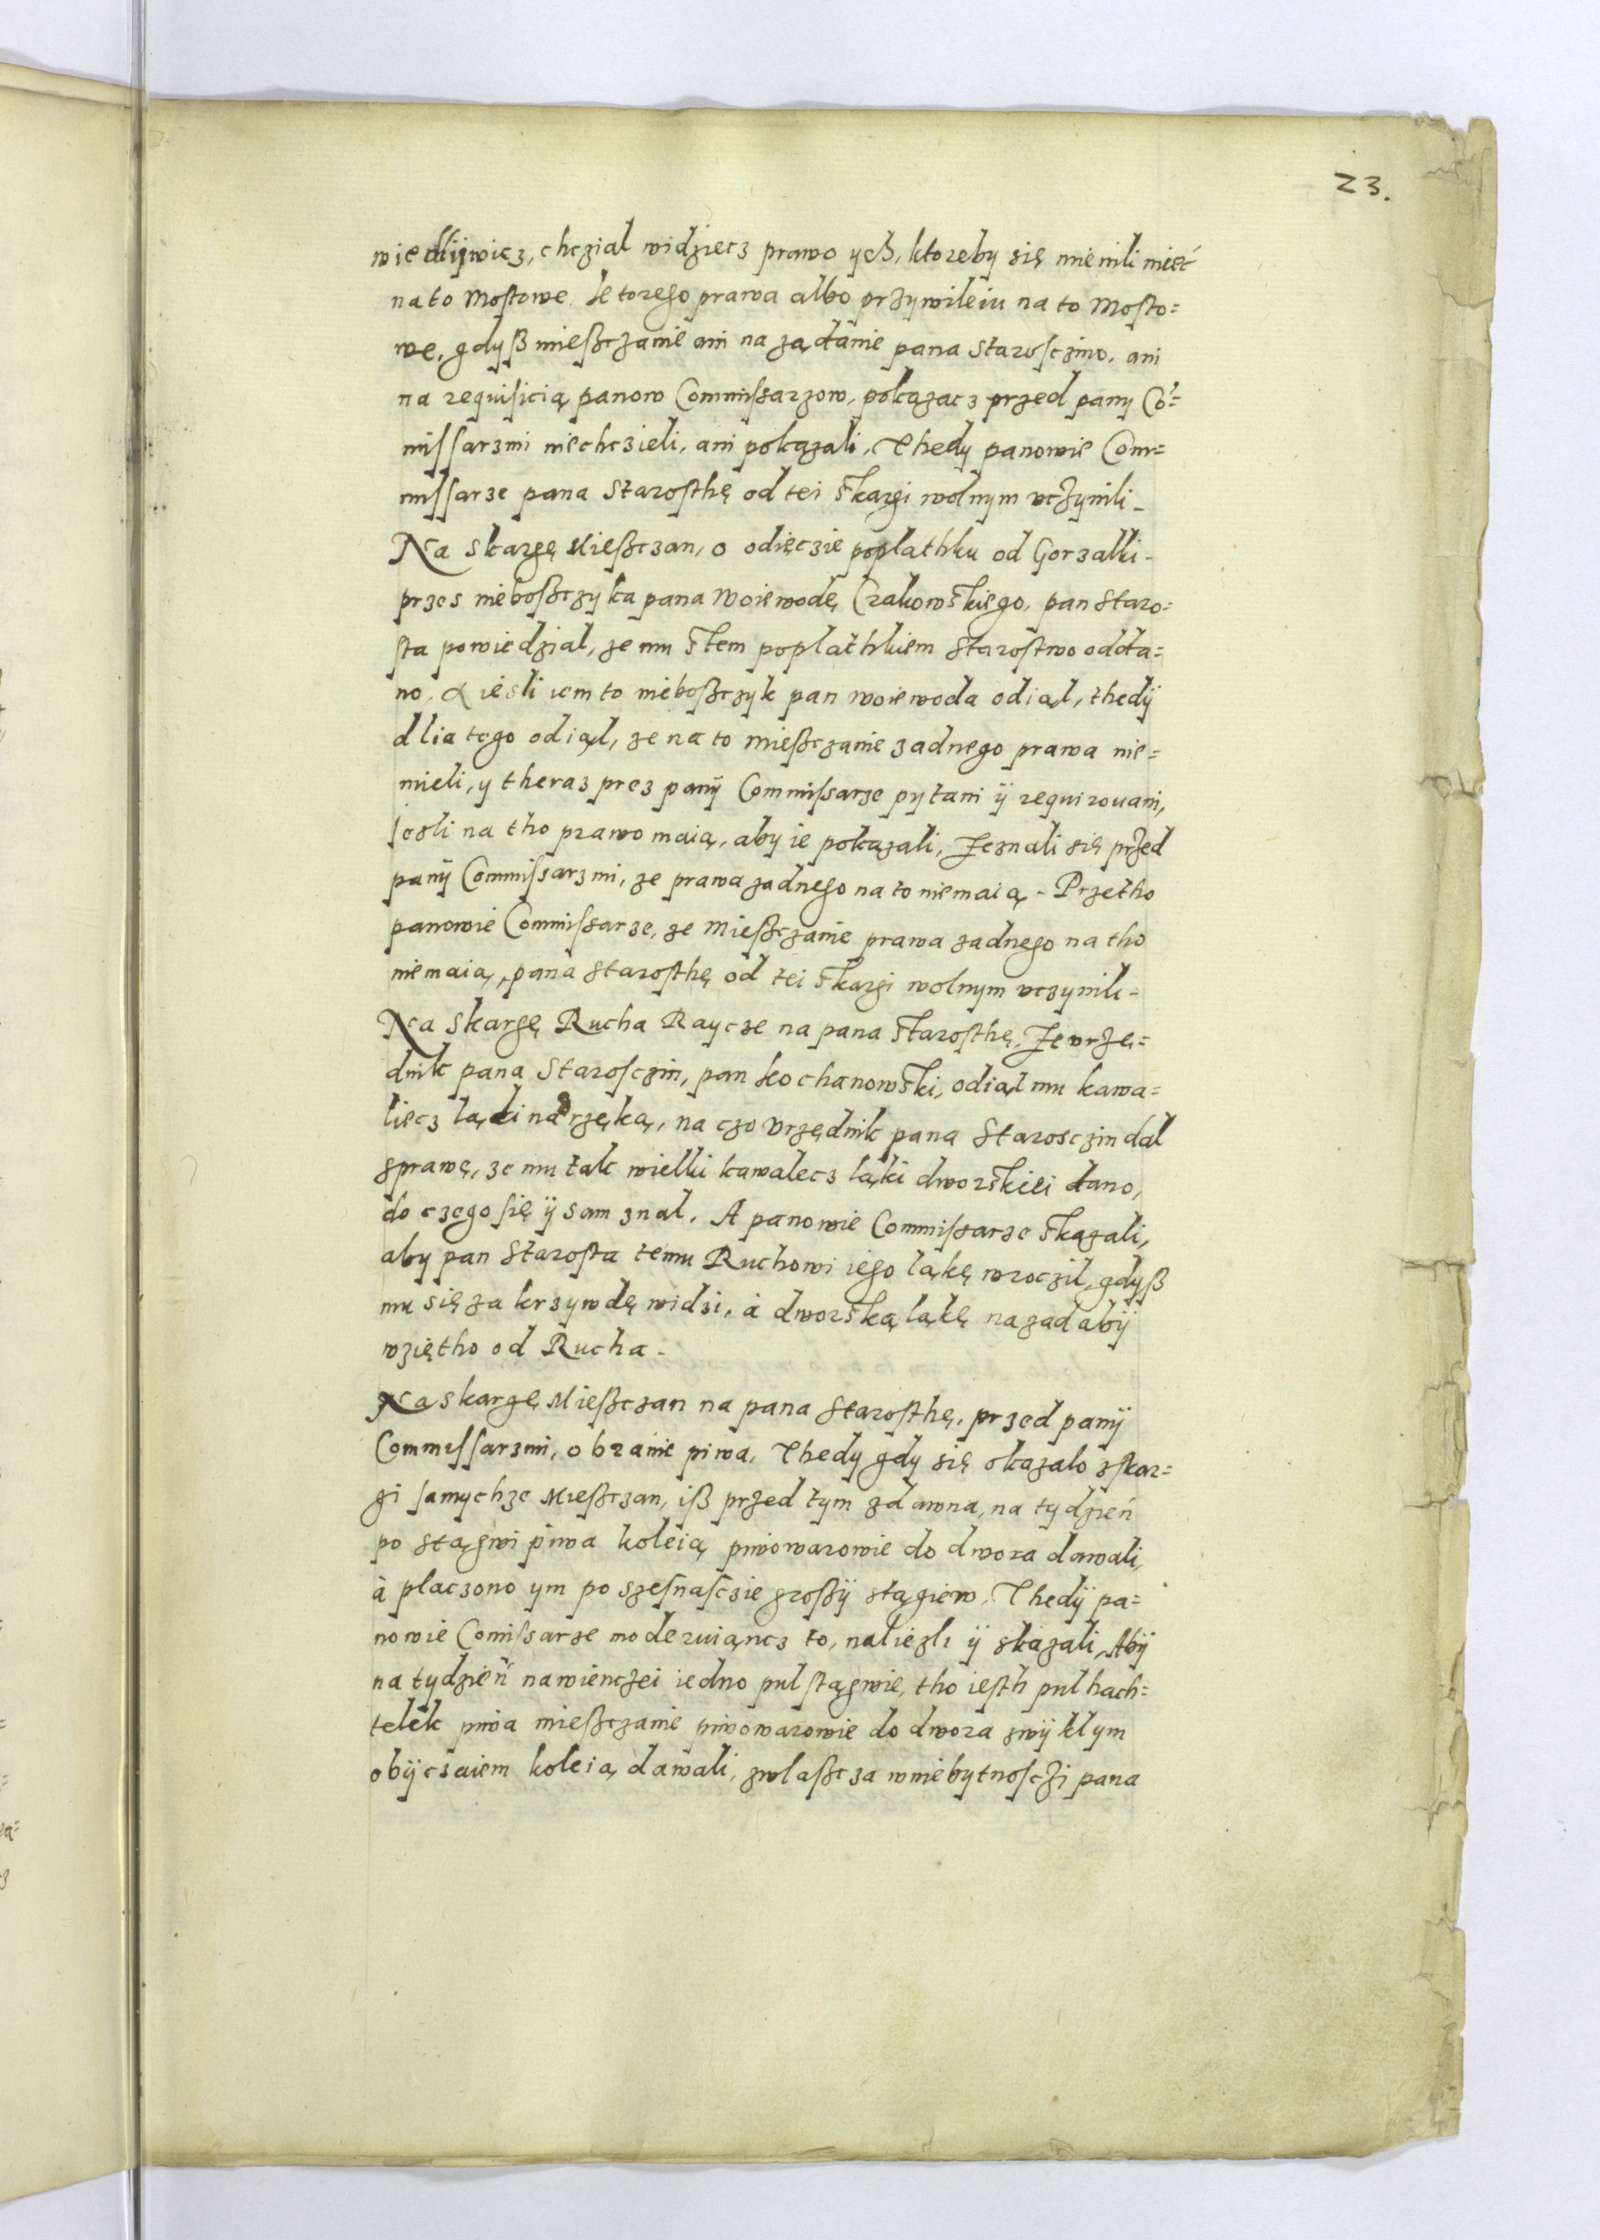 23.
wiedliwicz, chczial widziecz prawo ych, ktoreby się mienili mieć
na to Mostowe. Ktorego prawa albo przywileiu na to Mosto=
we, gdyß mießczanie ani na ządanie pana Starosczino, ani
na requisicią panow Commissarzow, pokazacz przed pany Co=
missarzmi niechczieli, ani pokazali, Thedy panowie Com=
missarze pana Starosthę od tei skargi wolnym vczynili_
Na skargę Mießczan, o odięczie poplathku od Gorzalki_
przes nieboßczyka pana woiewodę Crakowskiego, pan Staro=
sta powiedzial, ze mu stem poplathkiem starostwo odda=
no. A iesli iem to nieboßczyk pan woiewoda odiąl, thedÿ
dlia tego odiąl, ze na to mießczanie zadnego prawa nie=
mieli, y theraz prez panÿ Commissarze pytani ÿ requirouani,
iesli na tho prawo maią, aby ie pokazali, Zeznali się przed
panÿ Commissarzmi, ze prawa zadnego na to niemaią - Przetho
panowie Commissarze, ze mießczanie prawa zadnego na tho
niemaią, pana Starosthę od tei skargi wolnym vczynili-
Na skargę Rucha Raycze na pana starosthę, Ze vrzę=
dnik pana Starosczin, pan Kochanowski, odiąl mu kawa=
liecz ląki nad rzęką, na czo vrzędnik pana Starosczin dal
sprawę, ze mu tak wielki kawalecz ląki dworskiei dano,
do czego się ÿ sam znal. A panowie Commissarze skazali,
aby pan Starosta temu Ruchowi iego ląkę wroczil, gdyß
mu się za krzywdę widzi, à dworską ląkę nazad abÿ
wziętho od Rucha-
Na skargę Mießczan na pana Starosthę, przed panÿ
Commissarzmi, o branie piwa, Thedy gdy się okazalo zskar=
gi samychze Mießczan, iß przed tym zdawna, na tydzień
po stągwi piwa koleią piwowarowie do dwora dawali,
à placzono ym po szesnasczie großÿ stągiew. Thedÿ pa=
nowie Comissarze moderuiąncz to, nalięzli ÿ skazali, Abÿ
na tydzień nawienczei iedno pul stągwie, tho iesth pul hach=
telek piwa mießczanie piwowarowie do dwora zwÿklym
obÿczaiem koleią dawali, zwlaßcza wniebytnosczi pana